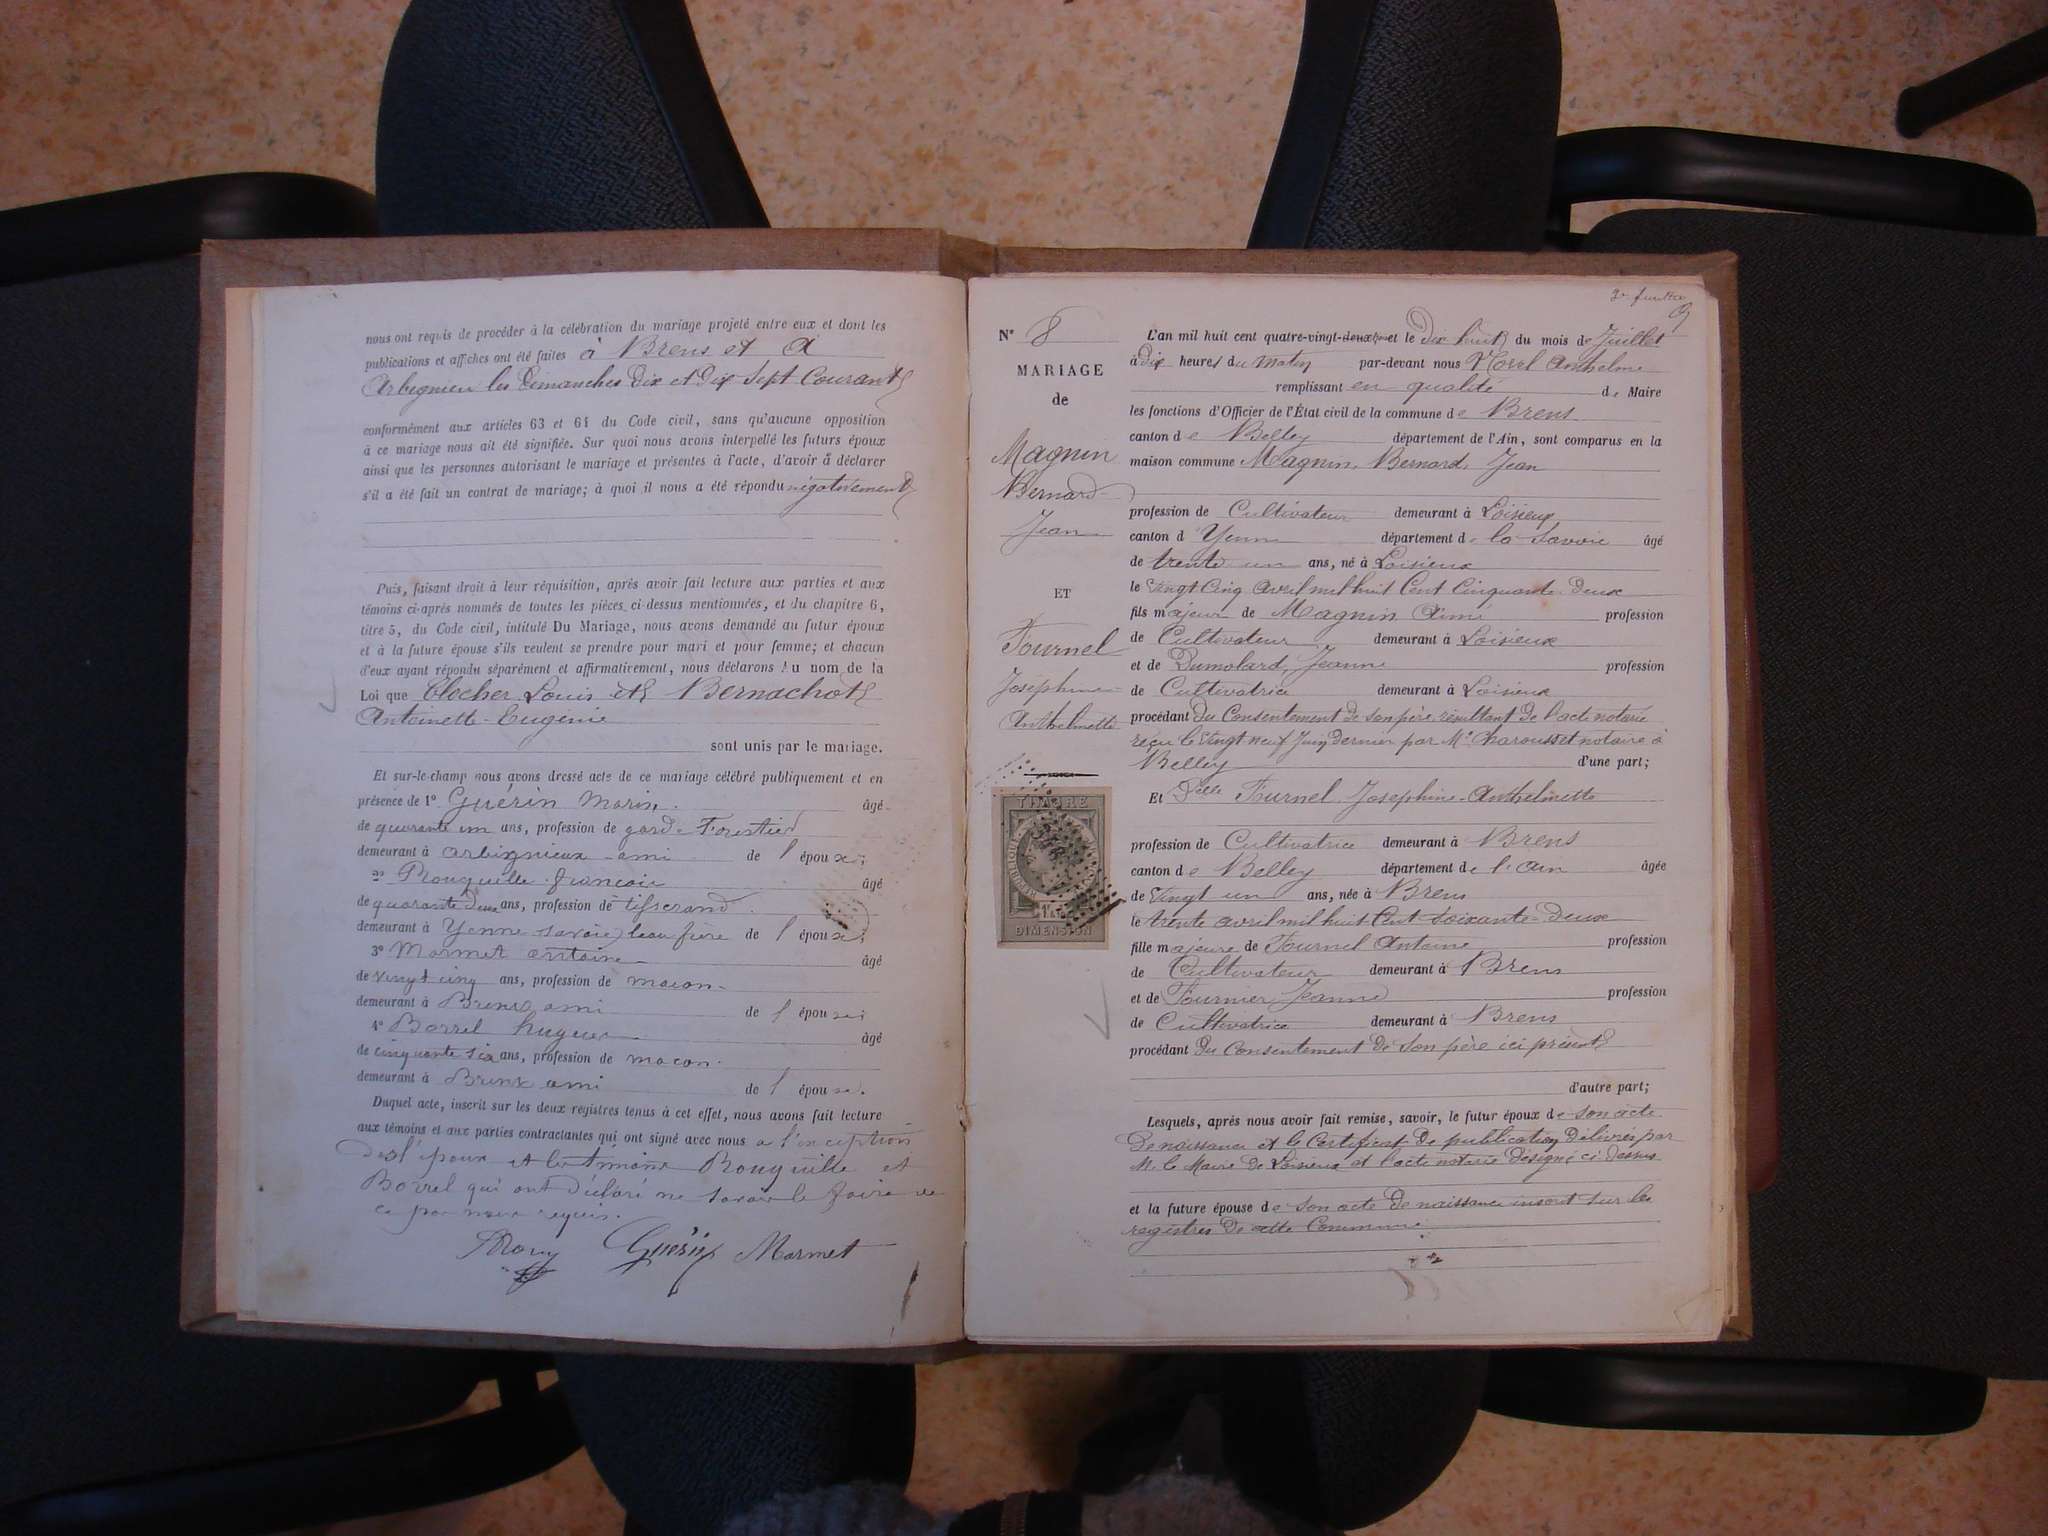 nous ont requis de procéder à la célébration du mariage projeté entre eux et dont les
publications et affiches ont été faites à Brens et à
Arbignieu les Dimanches Dix et Dix Sept Courant
conformément aux articles 63 et 64 du Code civil, sans qu'aucune opposition
à ce mariage nous ait été signifiée. Sur quoi nous avons interpellé les futurs époux
ainsi que les personnes autorisant le mariage et présentes à l'acte, d'avoir à déclarer
s'il a été fait un contrat de mariage; à quoi il nous a été répondu négativement
Puis, faisant droit à leur réquisition, après avoir fait lecture aux parties et aux
témoins ci-après nommés de toutes les pièces ci-dessus mentionnées, et du chapitre 6,
titre 5, du Code civil, intitulé Du Mariage, nous avons demandé au futur époux
et à la future épouse s'ils veulent se prendre pour mari et pour femme; et chacun
d'eux ayant répondu séparément et affirmativement, nous déclarons Au nom de la
Loi que Clocher Louis et Bernachot
Antoinette Eugénie
sont unis par le mariage.
Et sur-le-champ nous avons dressé acte de ce mariage célébré publiquement et en
présence de 1° Guérin Marin âgé
de quarante un ans, profession de garde Forestier
demeurant à Arbignieux ami de l époux;
2° Rouquille françois âgé
de quarante deux ans, profession de tisserand
demeurant à Yenne savoie beau frere de l époux;
3° Marmet antoine âgé
de vingt cinq ans, profession de macon
demeurant à Brens ami de l épouse;
4° Borrel hugues âgé
de cinquante six ans, profession de macon
demeurant à Brens ami de l épouse.
Duquel acte, inscrit sur les deux registres tenus à cet effet, nous avons fait lecture
aux témoins et aux parties contractantes qui ont signé avec nous a l'exception
de l'époux et les témoins Rouquille et
Borrel qui ont déclaré ne savoir le faire de
ce par nous requis.
Guérin Marmet
N° 8
MARIAGE
de
Magnin
Bernard
Jean
ET
Fournel
Joséphine
Anthelmette
TIMBRE
DIMENSION
L'an mil huit cent quatre-vingt-deux et le dix huit du mois de Juillet
à dix heures du matin par-devant nous Morel Anthelme
remplissant en qualité de Maire
les fonctions d'Officier de l'État civil de la commune de Brens
canton de Belley département de l'Ain, sont comparus en la
maison commune Magnin, Bernard, Jean
profession de Cultivateur demeurant à Loisieux
canton d Yenne département de la Savoie âgé
de trente un ans, né à Loisieux
le Vingt Cinq avril mil huit Cent Cinquante Deux
fils majeur de Magnin Aimé profession
de Cultivateur demeurant à Loisieux
et de Dumolard, Jeanne profession
de Cultivatrice demeurant à Loisieux
procédant du Consentement de son père résultant de l'acte notarié
reçu le Vingt neuf Juin Dernier par Me Charousset notaire à
Belley d'une part;
Et Delle Fournel Joséphine-Anthelmette
profession de Cultivatrice demeurant à Brens
canton de Belley département de l'ain âgée
de Vingt un ans, née à Brens
le trente avril mil huit Cent Soixante-Deux
fille majeure de Fournel Antoine profession
de Cultivateur demeurant à Brens
et de Fournier, Jeanne profession
de Cultivatrice demeurant à Brens
procédant du Consentement de son père ici présent
d'autre part;
Lesquels, après nous avoir fait remise, savoir, le futur époux de son acte
De naissance et le Certificat De publication délivrés par
M. le Maire De Loisieux et l'acte notarié désigné ci dessus
et la future épouse de son acte de naissance inscrit sur les
registres De cette Commune